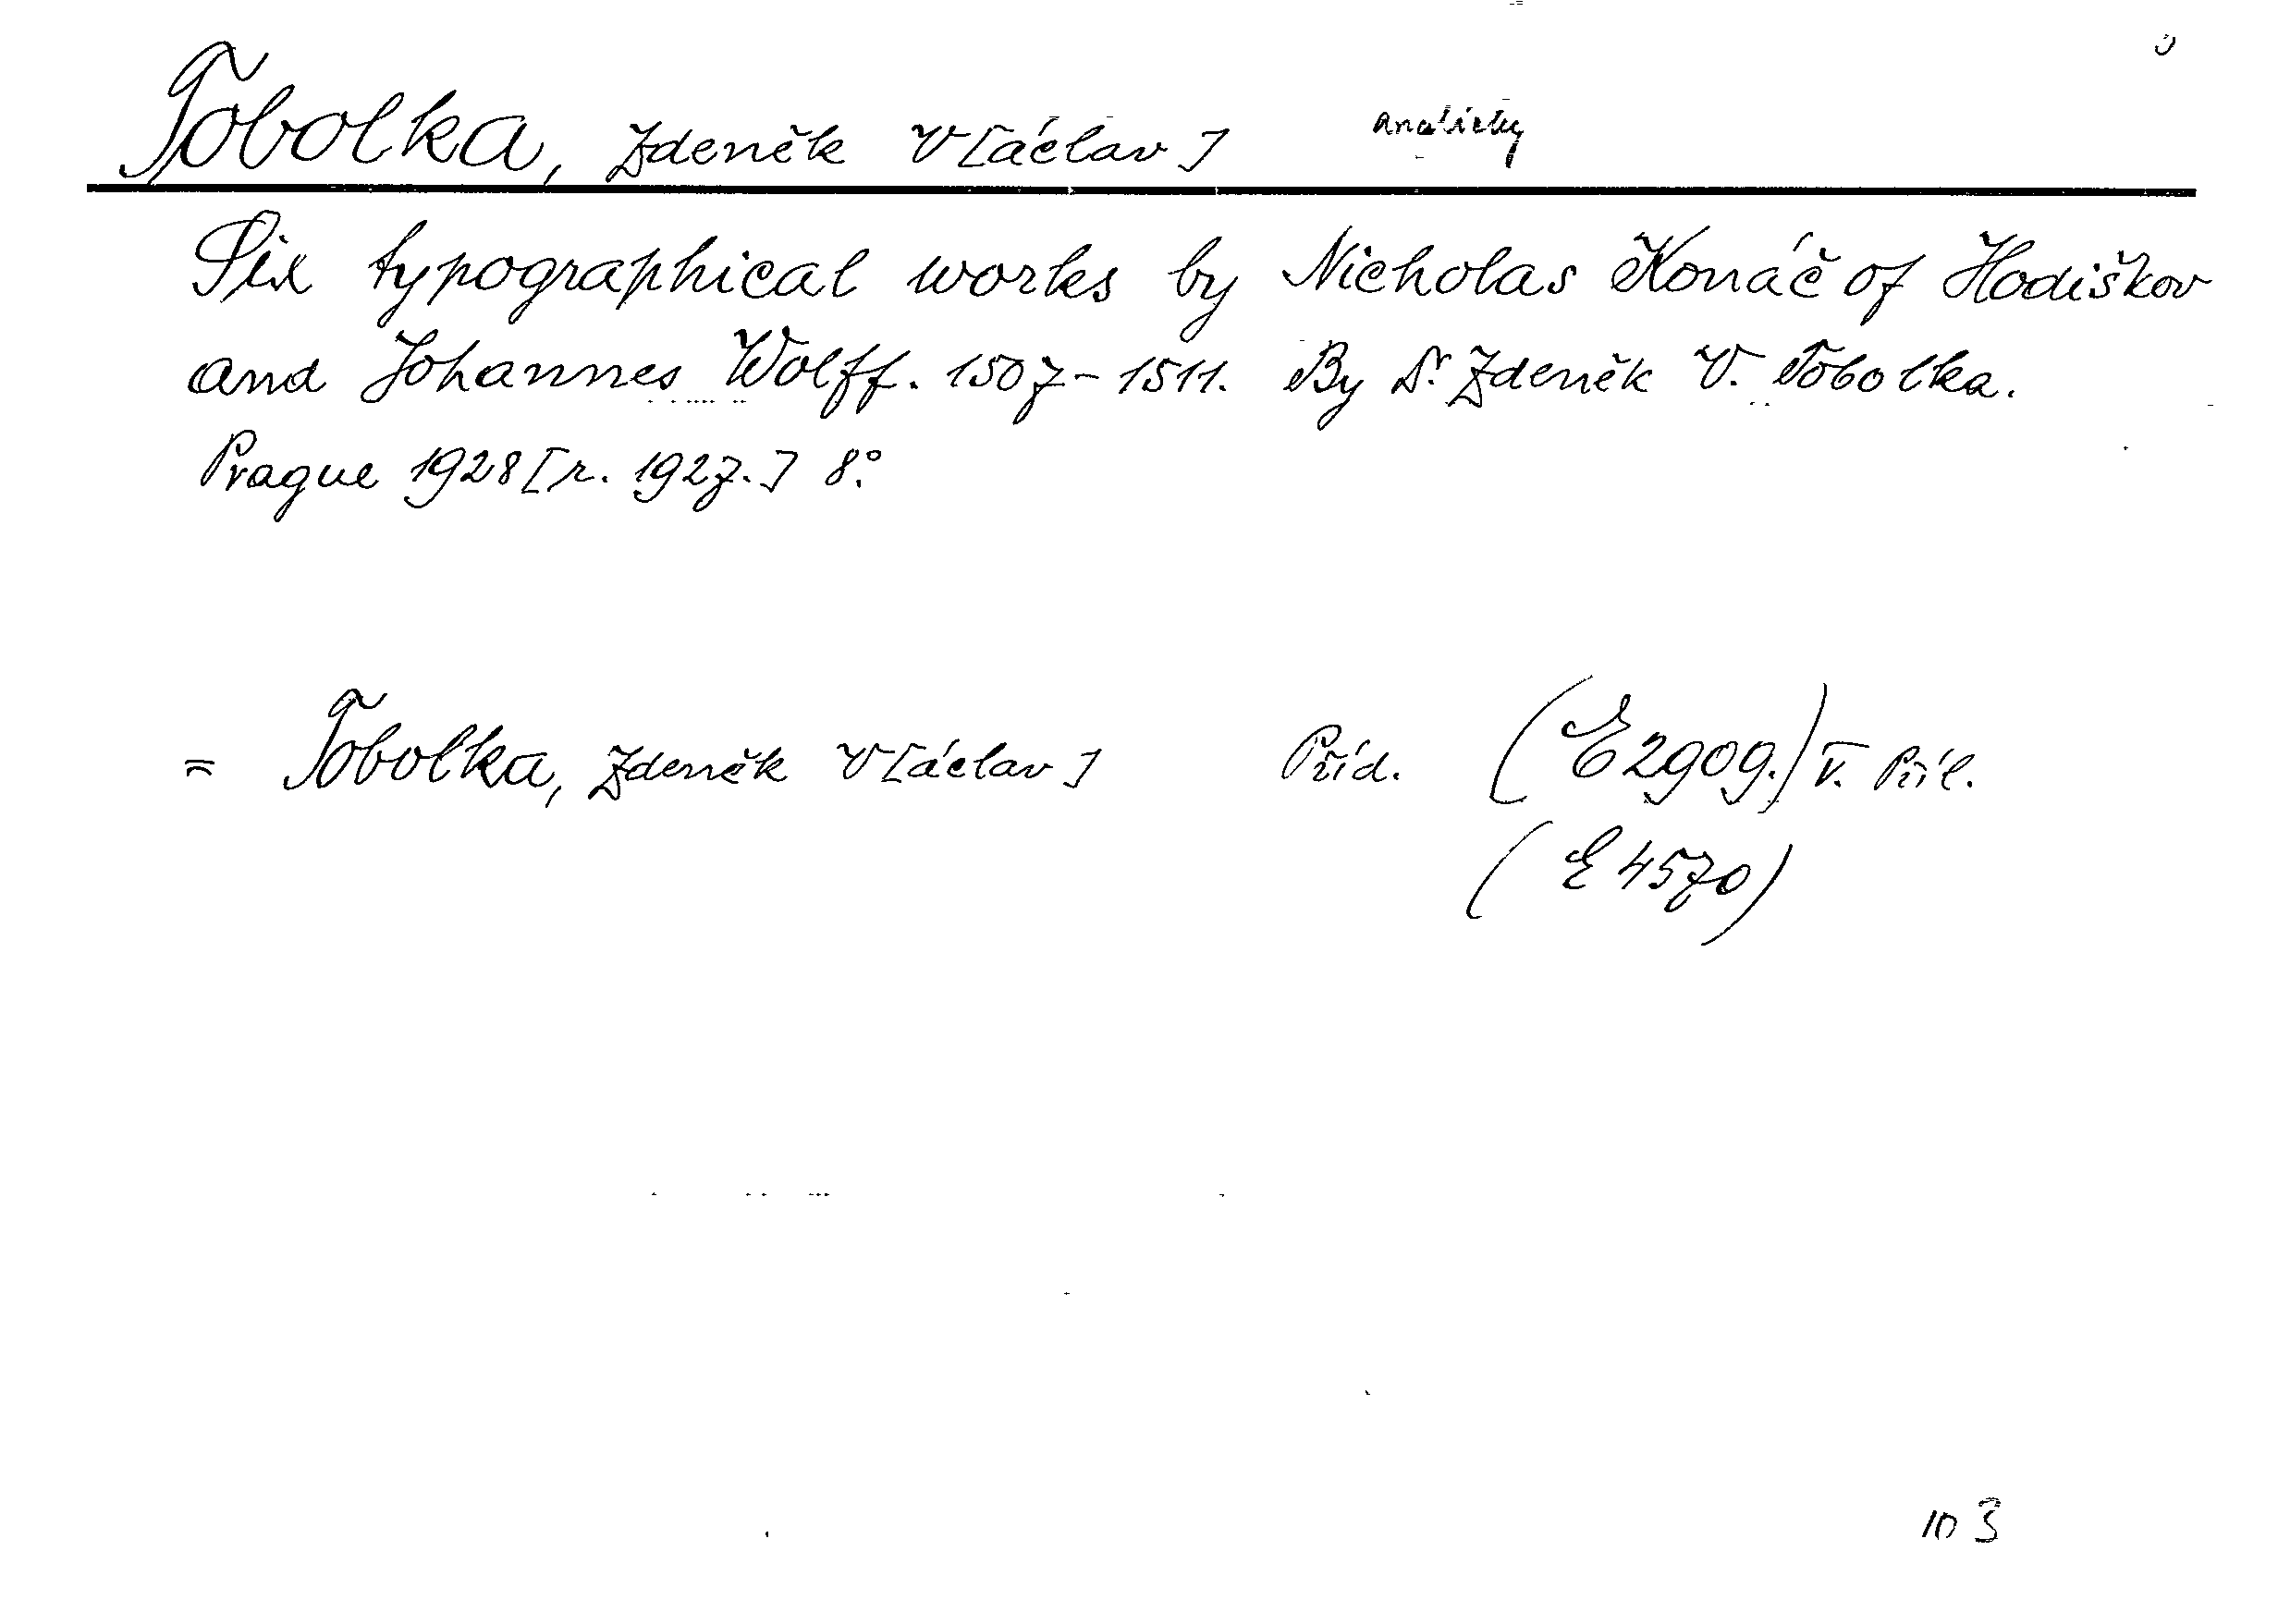 Tobolka, Zdeněk V[áclav] anglicky
Six typographical works by Nicholas Konáč of Hodiškov
and Johannes Wolff. 1507-1511. By Dr Zdeněk V. Tobolka.
Prague 1928 [r. 1927.] 8°.
= Tobolka, Zdeněk V[áclav] Příd. (E2909.) V. Příl.
(E 4570)
103